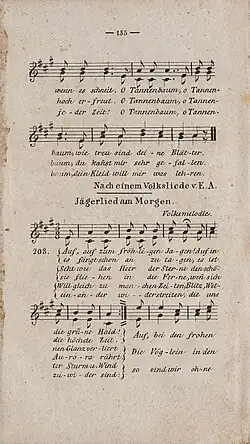 — 155 —
wenn es schneit. O Tannenbaum, o Tannen-
hoch er-freut. O Tannenbaum, o Tannen-
je-der Zeit! O Tannenbaum, o Tannen-
baum, wie treu sind dei-ne Blät-ter.
baum, du kañst mir sehr ge-fal-len.
baum, dein Kleid will mir was leh-ren.
Nach einem Volksliede v. E. A.
Jägerlied am Morgen.
Volksmelodie.
203. Auf, auf zum fröh-li-gen Ja-gen! Auf in
es fängt schon an zu ta-gen, es ist
Seht wie das Heer der Ster-ne den schö-
sie flie-hen in die Fer-ne, weh sich
Will gleich zu man-chen Zei-ten, Blitz, Wet-
ein-an-der wi-der streiten, die uns
die grü-ne Haid!
die höchste Zeit.
nen Glanz ver-liert
Au-ro-ra rührt
ter Sturm u. Wind
zu-wi-der sind:
Auf, bei den frohen
Die Vög-lein in den
so sind wir oh-ne